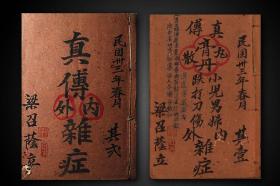 民國卅三年春月 其弍
真傳內外雜症
梁召蔭立
民國卅三年春月 其壹
真傳
丸散膏丹
小兒男婦內
跌打刀傷外
雜症
梁召蔭立